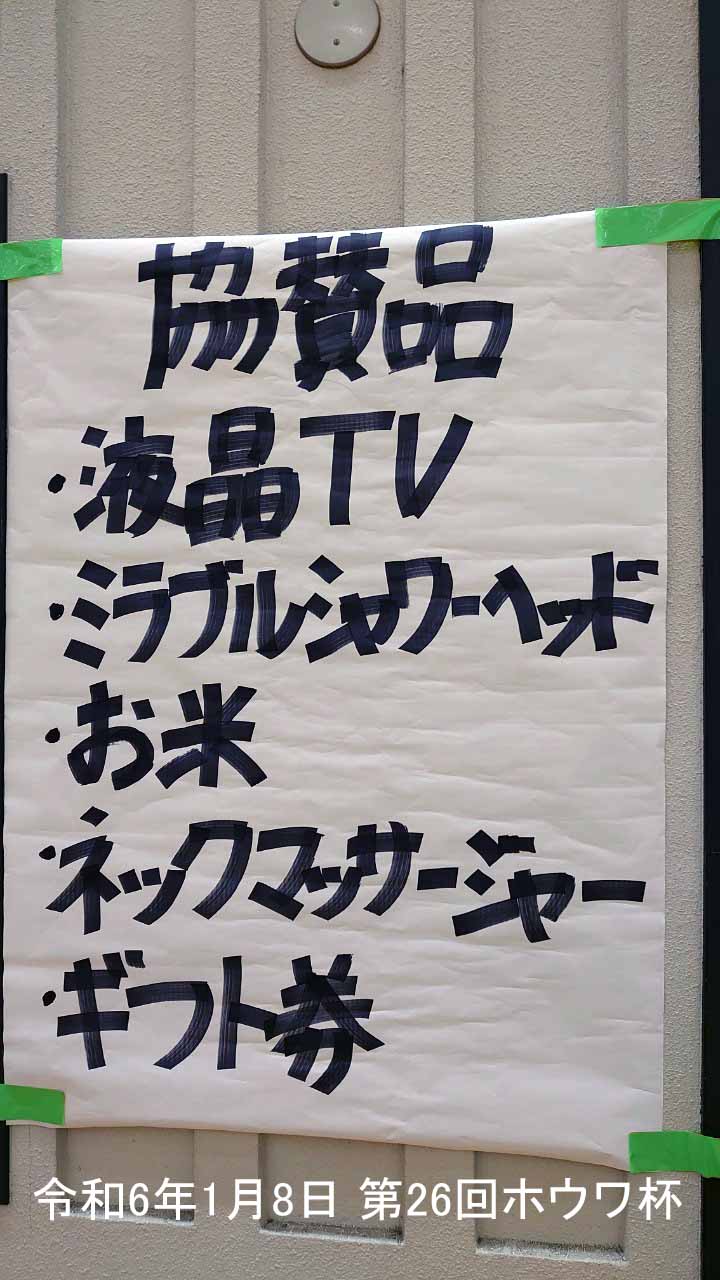 協賛品
・液晶TV
・ミラブルシャワーヘッド
・お米
・ネックマッサージャー
・ギフト券
令和6年1月8日 第26回ホウワ杯